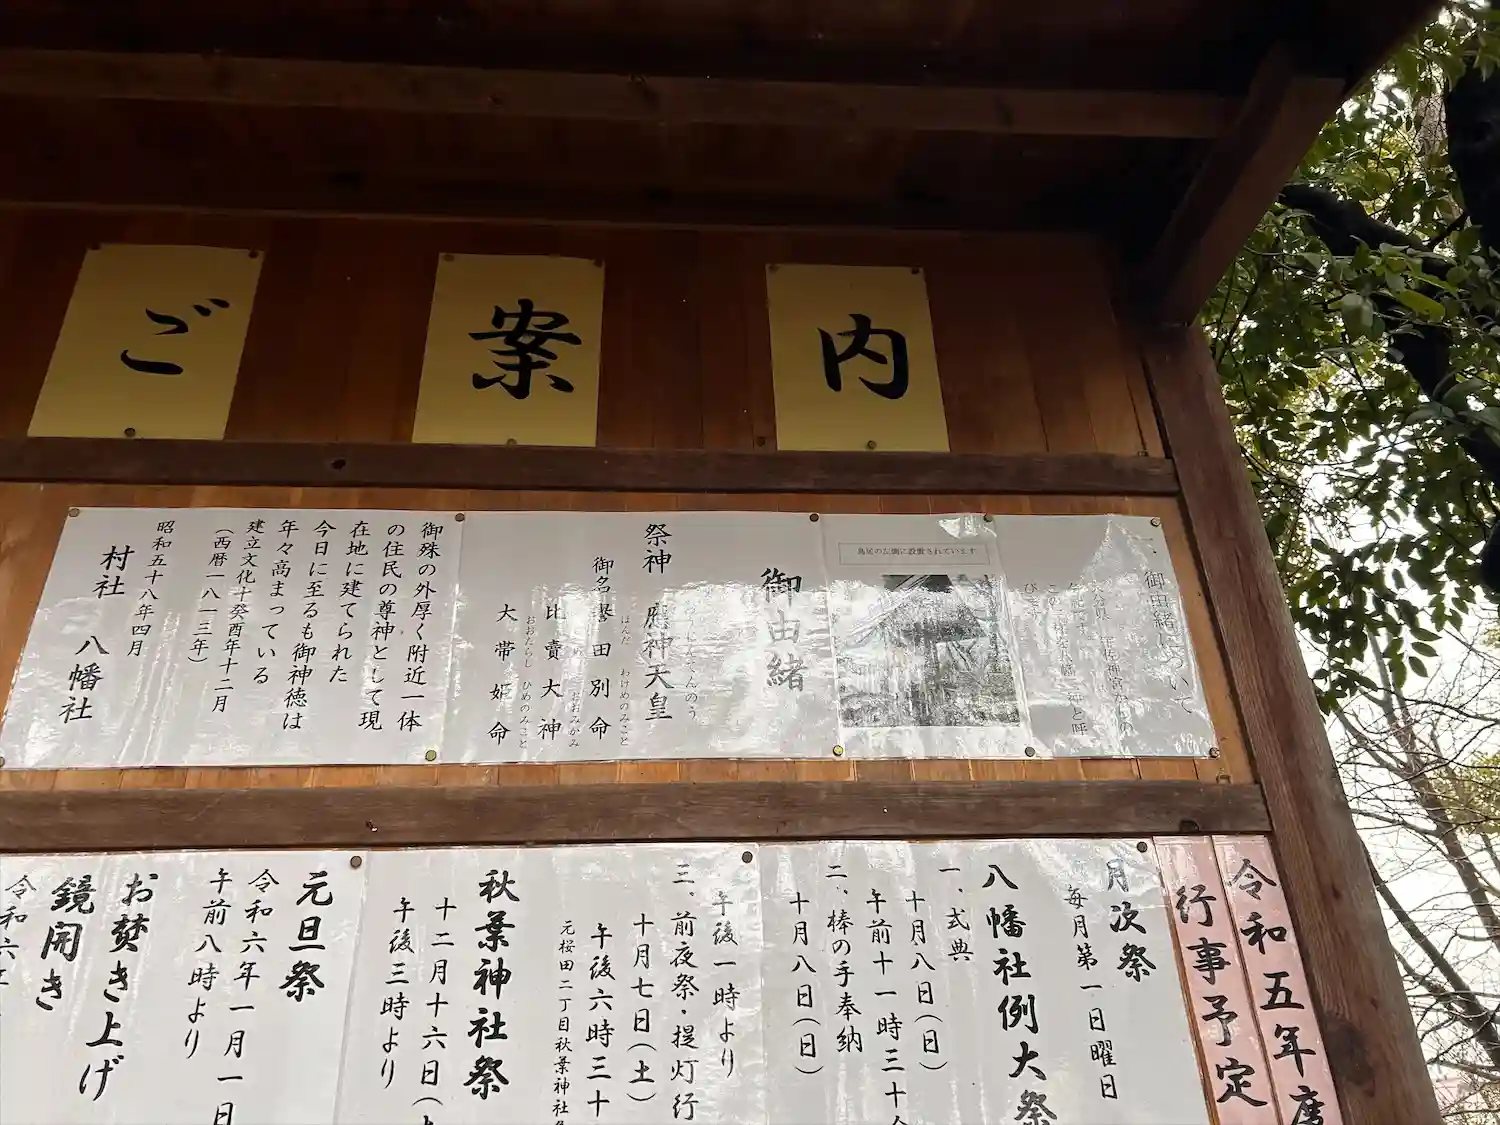 ご案内
御由緒について
鳥居の左側に設置されています
御由緒
祭神 應神天皇
御名誉田別命
ほんだ わけめのみこと
比賣大神
大帯姫命
おおたらし ひめのみこと
御殊の外厚く附近一体
の住民の尊神として現
在地に建てられた
今日に至るも御神徳は
年々高まっている
建立文化十癸酉年十二月
(西暦一八一三年)
昭和五十八年四月
村社 八幡社
令和五年度
行事予定
月次祭
毎月第一日曜日
八幡社例大祭
一、式典
十月八日(日)
午前十一時三十
二、棒の手奉納
十月八日(日)
午後一時より
三、前夜祭・提灯行
十月七日(土)
午後六時三十
元桜田二丁目秋葉神社
秋葉神社祭
十二月十六日(
午後三時より
元旦祭
令和六年一月一日
午前八時より
お焚き上げ
鏡開き
令和六